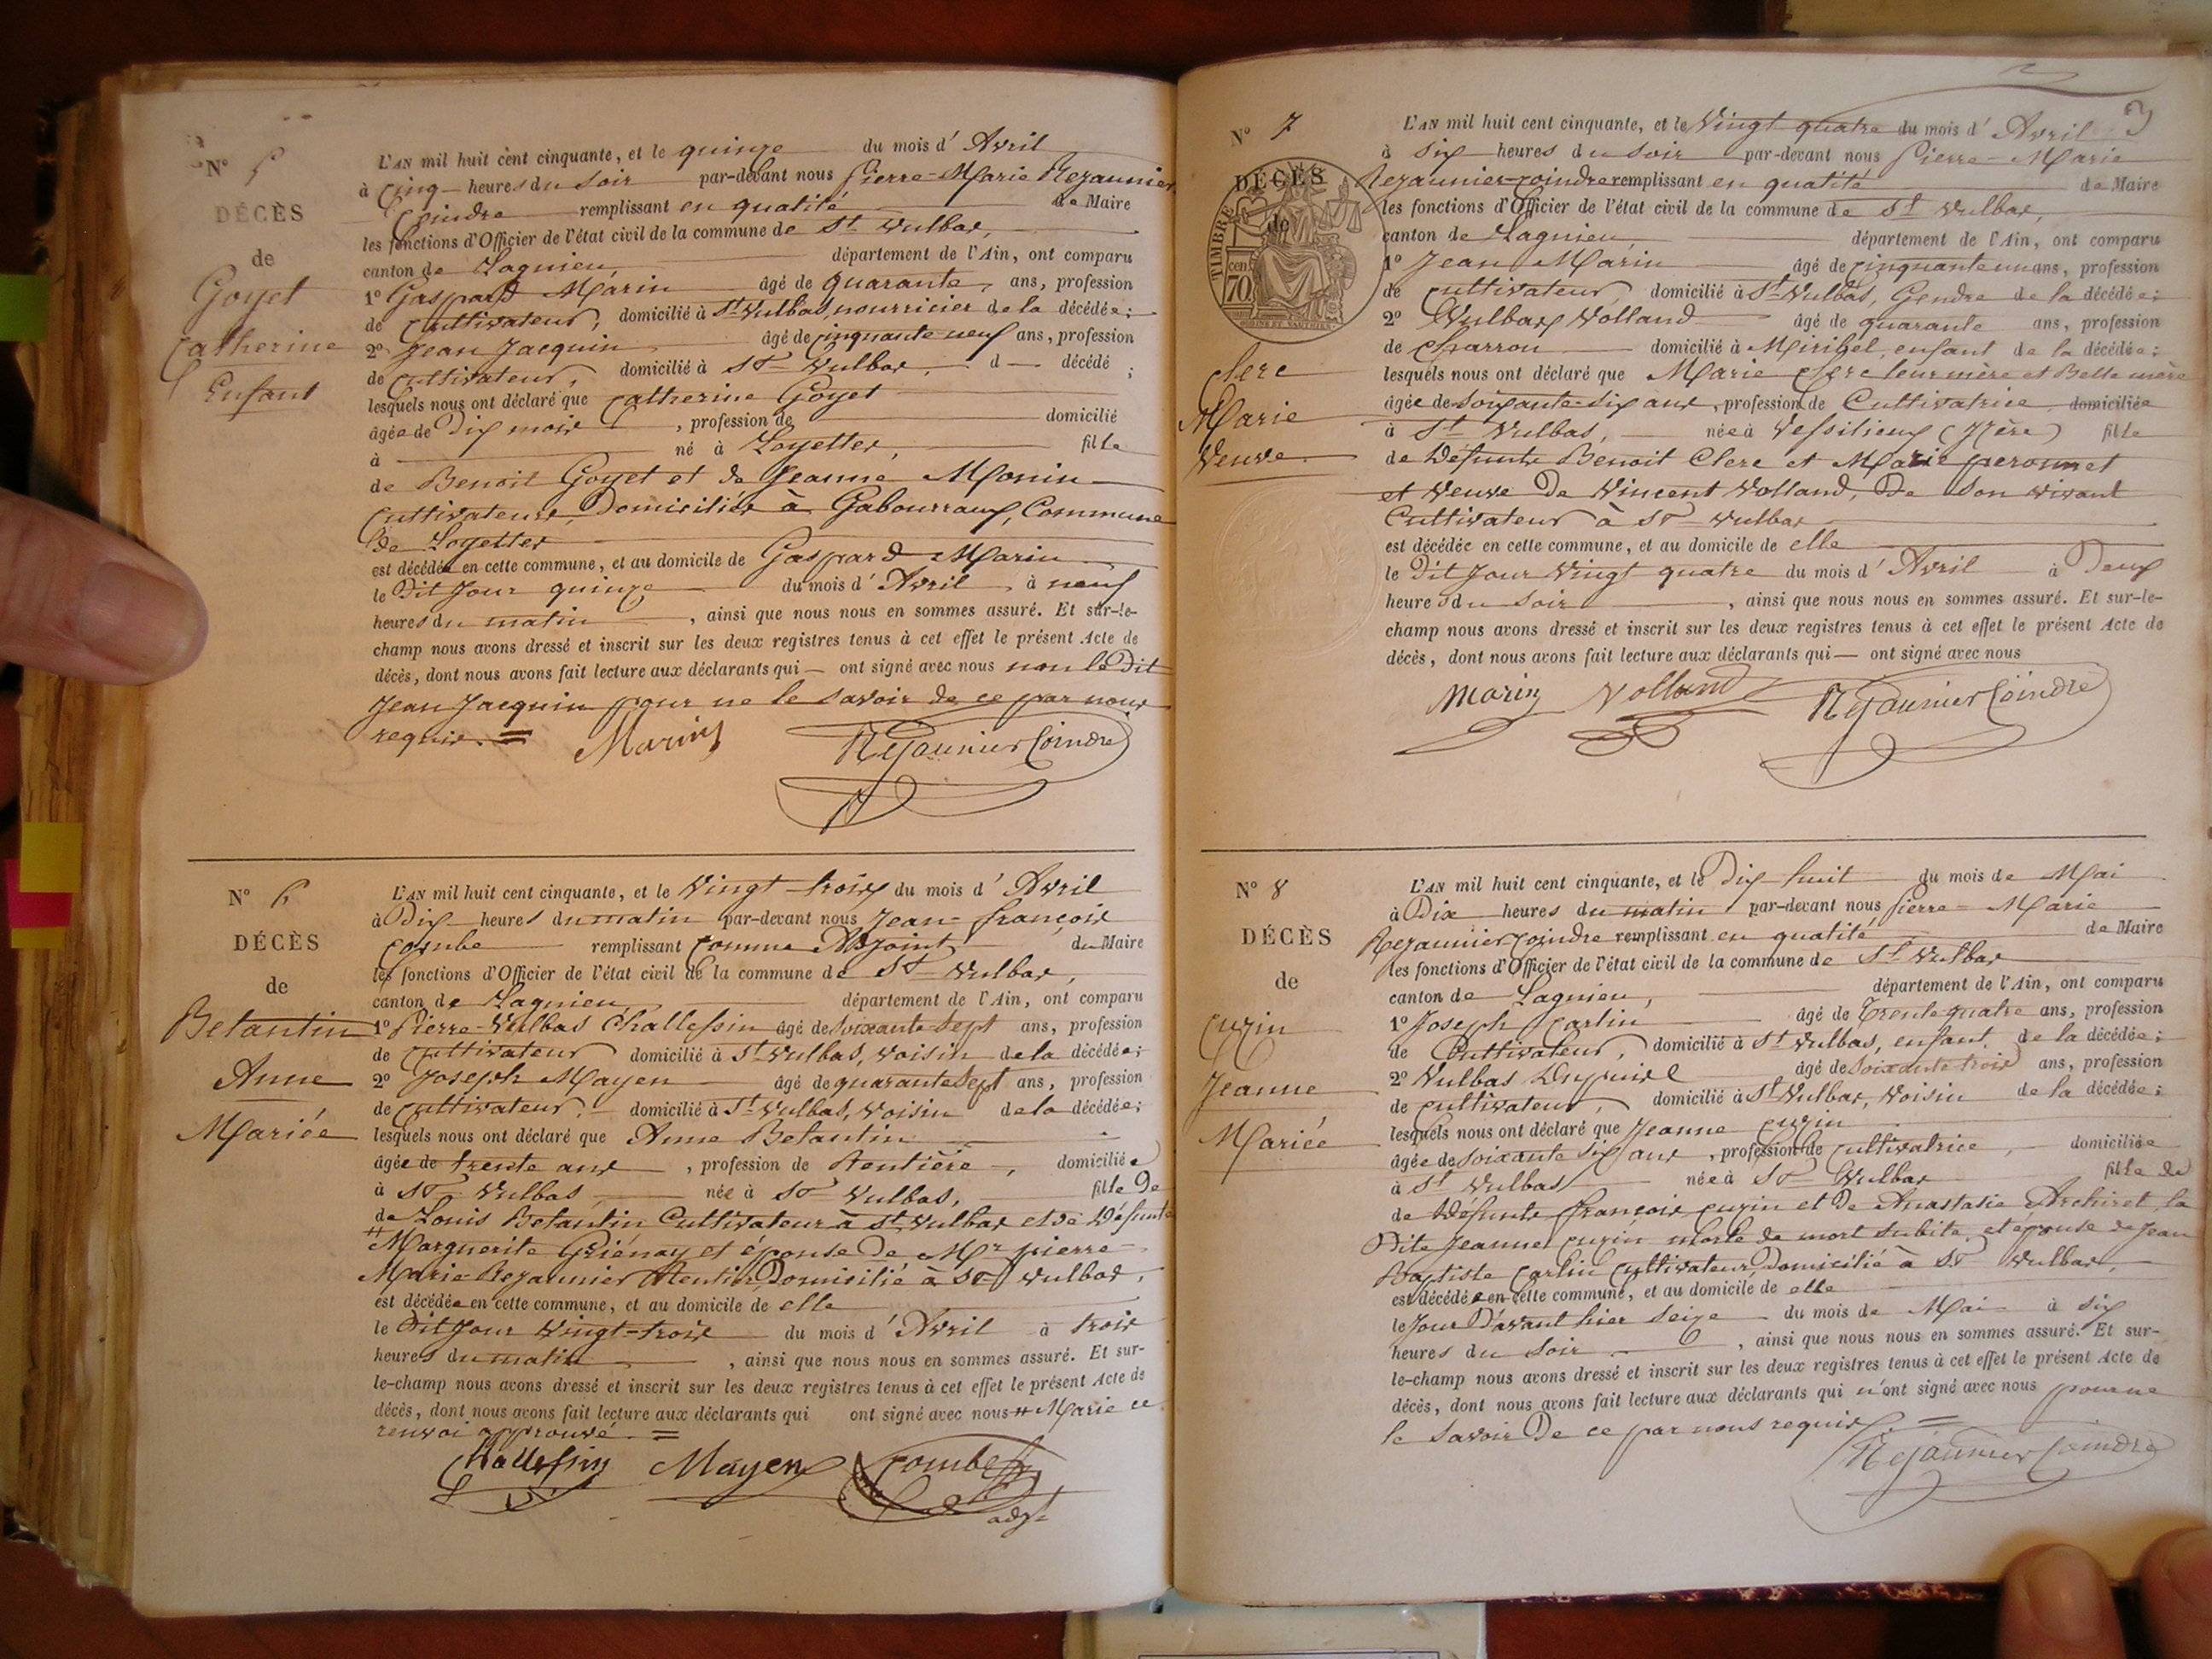 N° 5
DÉCÈS
de
Goyet
Catherine
Enfant
L'AN mil huit cent cinquante, et le quinze du mois d'Avril
à Cinq heures du Soir par-devant nous Pierre-Marie Rejaunier
Coindre remplissant en qualité de Maire
les fonctions d'Officier de l'état civil de la commune de St Vulbas,
canton de Lagnieu, département de l'Ain, ont comparu
1° Gaspard Marin âgé de quarante, ans, profession
de Cultivateur, domicilié à St Vulbas, nourricier de la décédée;
2° Jean Jacquin âgé de cinquante neuf ans, profession
de Cultivateur, domicilié à St Vulbas, d décédé ;
lesquels nous ont déclaré que Catherine Goyet
âgée de Dix mois, profession de domicilié
à né à Loyettes, fille
de Benoit Goyet et de Jeanne Monin
Cultivateurs, Domiciliés à Gabourraux, Commune
de Loyettes
est décédée en cette commune, et au domicile de Gaspard Marin
le Dit Jour quinze du mois d'Avril à neuf
heures du matin, ainsi que nous nous en sommes assuré. Et sur-le-
champ nous avons dressé et inscrit sur les deux registres tenus à cet effet le présent Acte de
décès, dont nous avons fait lecture aux déclarants qui ont signé avec nous non le Dit
Jean Jacquin pour ne le savoir de ce par nous
requis. =
Marin Rejaunier Coindre
N° 6
DÉCÈS
de
Betantin
Anne
Mariée
L'AN mil huit cent cinquante, et le Vingt-trois du mois d'Avril
à Dix heures du matin par-devant nous Jean-françois
Combe remplissant Comme Adjoint du Maire
les fonctions d'Officier de l'état civil de la commune de St Vulbas,
canton de Lagnieu, département de l'Ain, ont comparu
1° Pierre-Vulbas Challessin âgé de Soixante Sept ans, profession
de Cultivateur domicilié à St Vulbas, Voisin de la décédée;
2° Joseph Mayen âgé de quarante Sept ans, profession
de Cultivateur, domicilié à St Vulbas, Voisin de la décédée;
lesquels nous ont déclaré que Anne Betantin
âgée de trente ans, profession de Rentière, domiciliée
à St Vulbas née à St Vulbas, fille De
de Louis Betantin Cultivateur à St Vulbas et de Défunte
# Marguerite Griénay et épouse De Mr pierre-
Marie Rejaunier Rentier, Domicilié à St Vulbas,
est décédée en cette commune, et au domicile de elle
le Dit Jour Vingt-trois du mois d'Avril à trois
heures du matin, ainsi que nous nous en sommes assuré. Et sur-
le-champ nous avons dressé et inscrit sur les deux registres tenus à cet effet le présent Acte de
décès, dont nous avons fait lecture aux déclarants qui ont signé avec nous # Marie ce
renvoi approuvé. =
Challessin Mayen Combe
adjt
3
N° 7
DÉCÈS
de
TIMBRE
70 cen
Clerc
Marie
Veuve
L'AN mil huit cent cinquante, et le Vingt quatre du mois d'Avril
à Six heures du Soir par-devant nous Pierre-Marie
Rejaunier-Coindre remplissant en qualité de Maire
les fonctions d'Officier de l'état civil de la commune de St Vulbas,
canton de Lagnieu, département de l'Ain, ont comparu
1° Jean Marin âgé de cinquante un ans, profession
de Cultivateur, domicilié à St Vulbas, Gendre de la décédée;
2° Vulbas Volland âgé de quarante ans, profession
de Charron domicilié à Miribel, enfant de la décédée;
lesquels nous ont déclaré que Marie Clerc leur mère et Belle mère
âgée de Soixante-Six ans, profession de Cultivatrice, domiciliée
à St Vulbas, née à Vessilieux (Isère) fille
de Défunts Benoit Clerc et Marie peronnet
et Veuve De Vincent Volland, De Son vivant
Cultivateur à St Vulbas
est décédée en cette commune, et au domicile de elle
le Dit Jour Vingt quatre du mois d'Avril à Deux
heures du Soir, ainsi que nous nous en sommes assuré. Et sur-le-
champ nous avons dressé et inscrit sur les deux registres tenus à cet effet le présent Acte de
décès, dont nous avons fait lecture aux déclarants qui ont signé avec nous
Marin Volland Rejaunier Coindre
N° 8
DÉCÈS
de
Cuzin
Jeanne
Mariée
L'AN mil huit cent cinquante, et le Dix huit du mois de Mai
à Dix heures du matin par-devant nous Pierre-Marie
Rejaunier Coindre remplissant en qualité de Maire
les fonctions d'Officier de l'état civil de la commune de St Vulbas
canton de Lagnieu, département de l'Ain, ont comparu
1° Joseph Carlin âgé de Trente quatre ans, profession
de Cultivateur, domicilié à St Vulbas, enfant, de la décédée;
2° Vulbas âgé de Soixante trois ans, profession
de Cultivateur, domicilié à St Vulbas, Voisin de la décédée;
lesquels nous ont déclaré que Jeanne Cuzin
âgée de Soixante Six ans, profession de Cultivatrice, domiciliée
à St Vulbas née à St Vulbas fille de
de Défunts françois Cuzin et De Anastasie Archiret, la
Dite Jeanne Cuzin morte de mort Subite, et épouse de Jean
Baptiste Carlin Cultivateur, Domicilié à St Vulbas,
est décédée en cette commune, et au domicile de elle
le Jour D'avant hier Seize du mois de Mai à Six
heures du Soir, ainsi que nous nous en sommes assuré. Et sur-
le-champ nous avons dressé et inscrit sur les deux registres tenus à cet effet le présent Acte de
décès, dont nous avons fait lecture aux déclarants qui n'ont signé avec nous pour ne
le savoir De ce par nous requis. =
Rejaunier Coindre